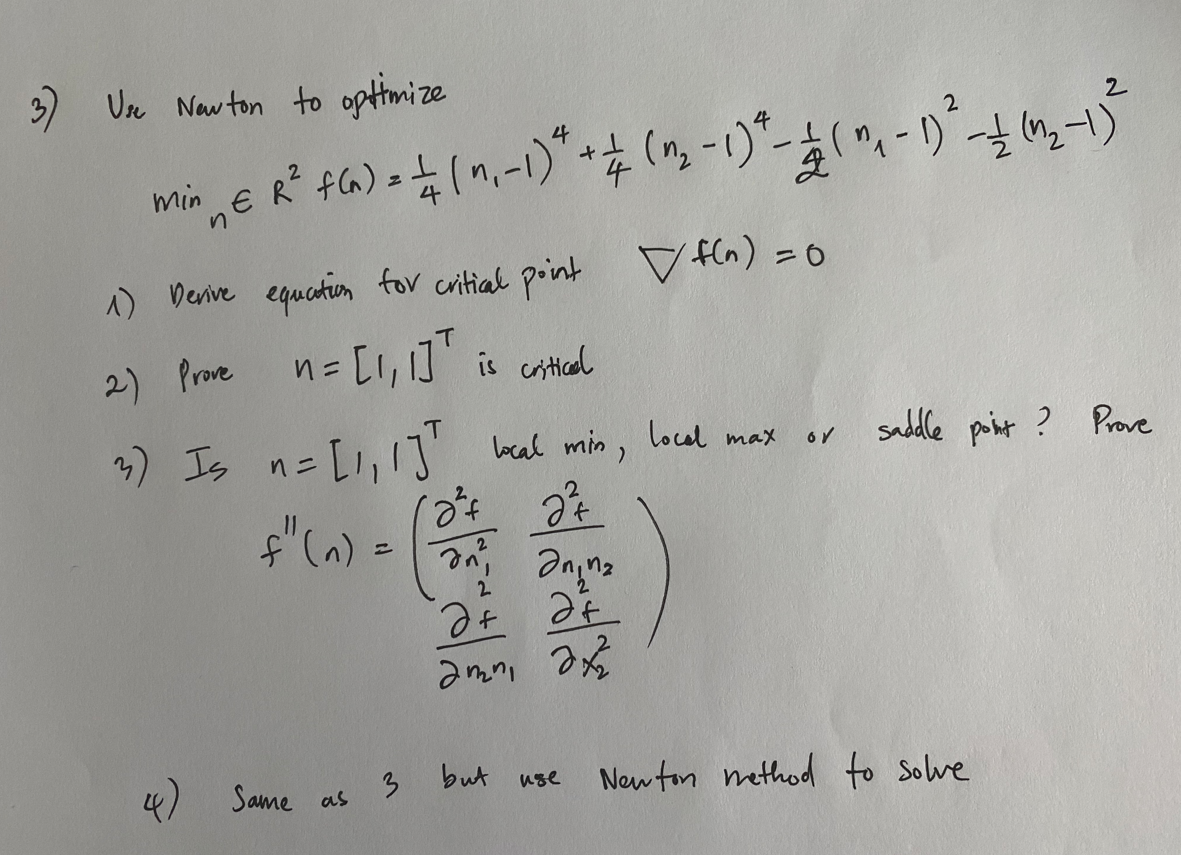 3) Use Newton to opttmize
min n ∈ R² f(n) = 1/4 (n₁-1)⁴ + 1/4 (n₂-1)⁴ - 1/2 (n₁-1)² - 1/2 (n₂-1)²
1) Derive equation for critical point ∇f(n) = 0
2) Prove n = [1, 1]ᵀ is critical
3) Is n = [1, 1]ᵀ local min, local max or saddle point? Prove
f''(n) = ( ∂²f/∂n₁² ∂²f/∂n₁n₂
∂²f/∂n₂n₁ ∂²f/∂x₂² )
4) Same as 3 but use Newton method to solve